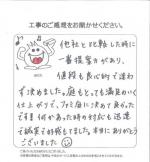 工事のご感想をお聞かせください。
他社と比較した時に
一番提案力があり、
値段も良心的で迷わ
ず決めました。庭もとても満足のいく
仕上がりで、ファミ庭に決めて良かった
です！何かあった時の対応も迅速
で誠実で好感もてました。本当にありがとう
ございました